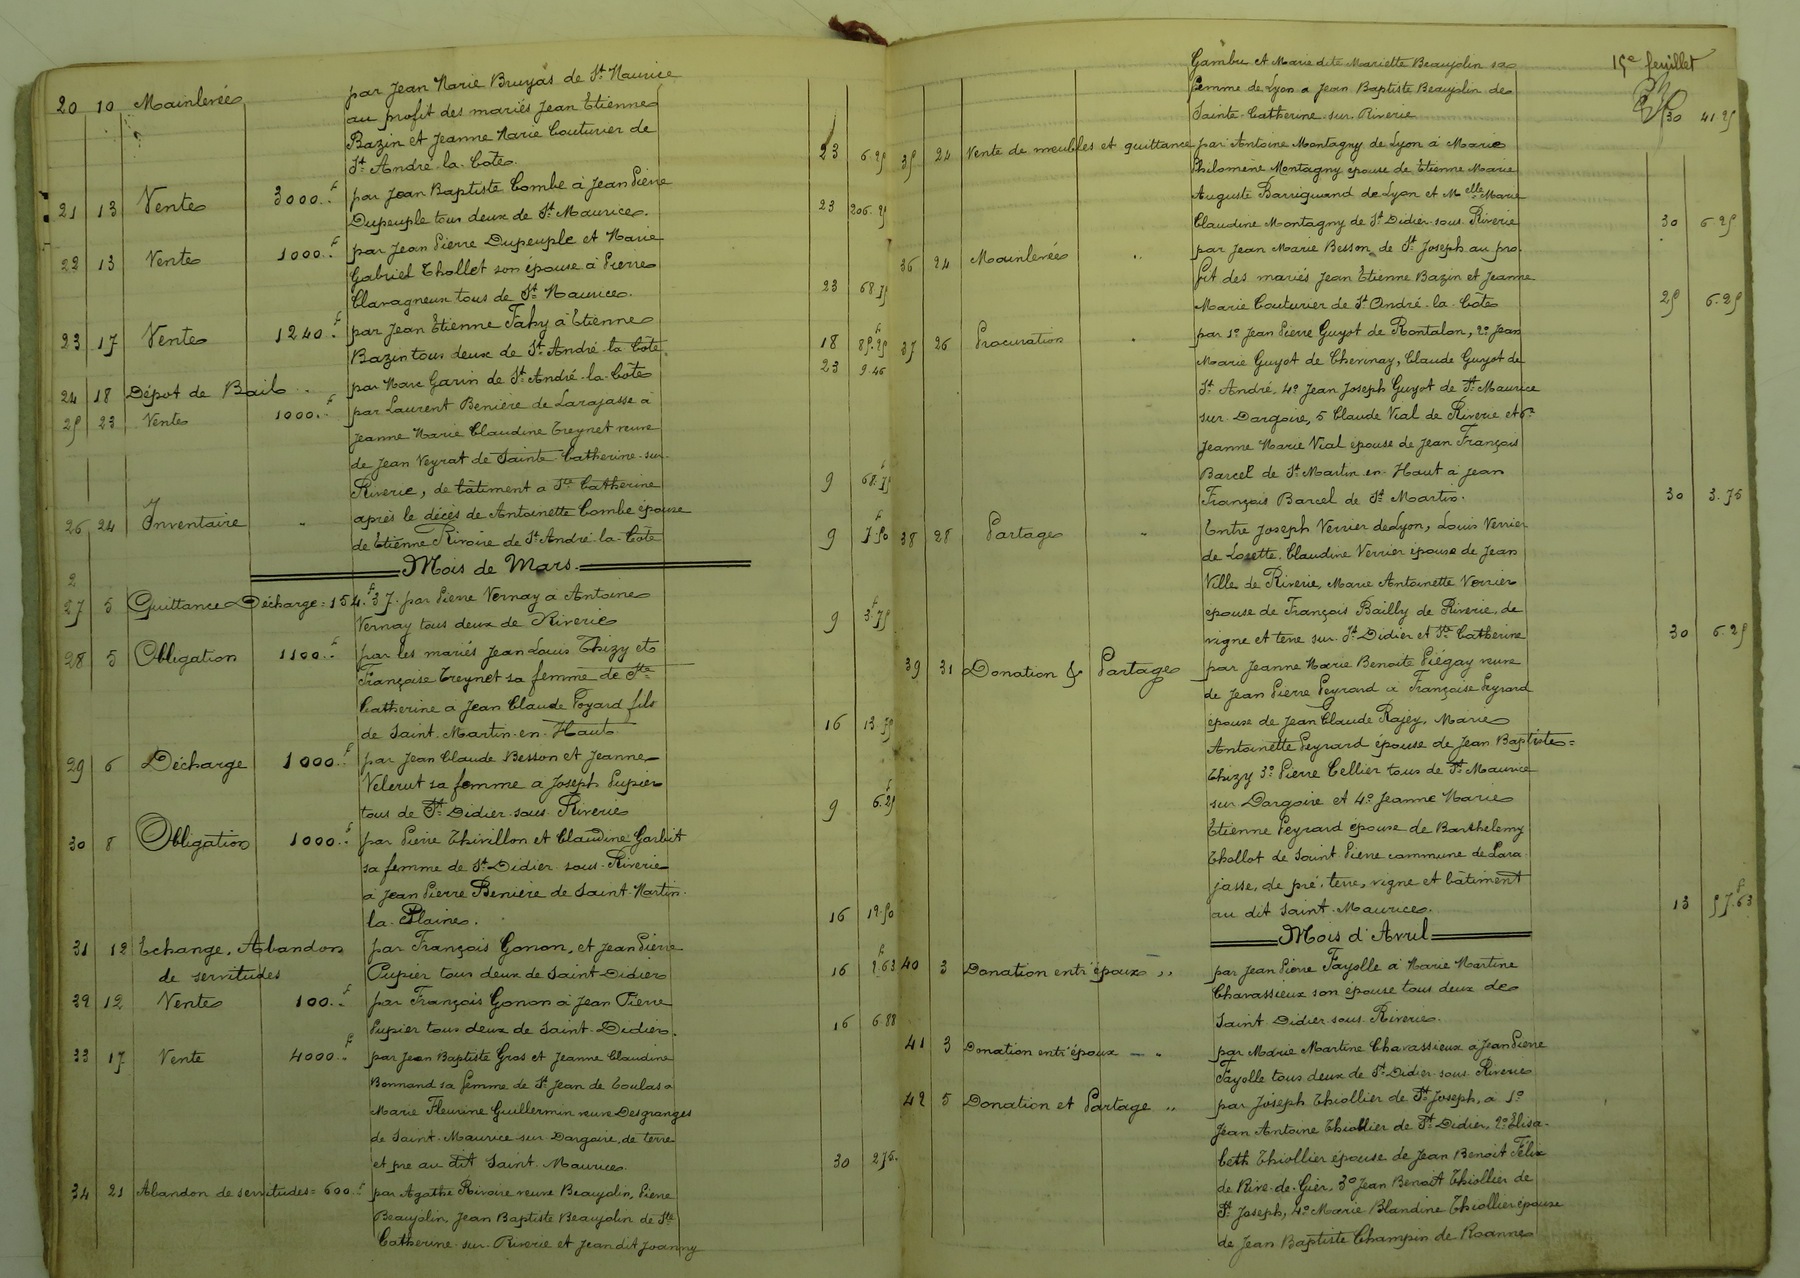 20 10 Mainlevée par Jean Marie Bruyas de St Maurice
au profit des mariés Jean Etienne
Bazin et Jeanne Marie Couturier de
St André-la-Côte. 23 6.25
21 13 Vente 3000.f par Jean Baptiste Combe à Jean Pierre
Dupeuple tous deux de St Maurice. 23 206.25
22 13 Vente 1000.f par Jean Pierre Dupeuple et Marie
Gabriel Thollet son épouse à Pierre
Clavagneux tous de St Maurice. 23 68.75
23 17 Vente 1240.f par Jean Etienne Fahy à Etienne
Bazin tous deux de St André-la-Côte. 18 85.25
24 18 Dépot de Bail .. par Marc Garin de St André-la-Côte 23 9.46
25 23 Vente 1000.f par Laurent Benière de Larajasse à
Jeanne Marie Claudine Treynet veuve
de Jean Veyrat de Sainte-Catherine-sur-
Riverie, de bâtiment a Ste Catherine 9 68.75
26 24 Inventaire " après le décès de Antoinette Combe épouse
de Etienne Rivoire de St André-la-Côte 9 7.50
Mois de Mars.
2
27 5 Quittance Décharge = 154.f37. par Pierre Vernay à Antoine
Vernay tous deux de Riverie 9 3.75
28 5 Obligation 1100.f par les mariés Jean Louis Thizy et
Françoise Treynet sa femme de Ste
Catherine a Jean Claude Poyard fils
de Saint-Martin-en-Haut. 16 13.75
29 6 Décharge 1000.f par Jean Claude Besson et Jeanne
Velerut sa femme a Joseph Pupier
tous de St Didier-sous-Riverie 9 6.25
30 8 Obligation 1000.f par Pierre Thivillon et Claudine Garbit
sa femme de St Didier-sous-Riverie
à Jean Pierre Benière de Saint-Martin-
la-Plaine. 16 12.50
31 12 Echange, Abandon par François Gonon, et Jean Pierre
de servitudes Pupier tous deux de Saint-Didier 16 2.63
32 12 Vente 100.f par François Gonon à Jean Pierre
Pupier tous deux de Saint-Didier. 16 6.88
33 17 Vente 4000.f par Jean Baptiste Gros et Jeanne Claudine
Bonnand sa femme de St Jean de Toulas a
Marie Fleurine Guillermin veuve Desgranges
de Saint-Maurice-sur-Dargoire, de terre
et pré au dit Saint-Maurice. 30 275.
34 21 Abandon de servitudes = 600.f par Agathe Rivoire veuve Beaujolin, Pierre
Beaujolin, Jean Baptiste Beaujolin de Ste
Catherine-sur-Riverie et Jean dit Joanny
15e feuillet
Gambu et Marie dite Mariette Beaujolin sa
femme de Lyon a Jean Baptiste Beaujolin de
Sainte-Catherine-sur-Riverie 30 41.25
35 24 Vente de meubles et quittance par Antoine Montagny de Lyon à Marie
Philomène Montagny épouse de Etienne Marie
Auguste Barriquand de Lyon et Melle Marie
Claudine Montagny de St Didier-sous-Riverie 30 6.25
36 24 Mainlevée " par Jean Marie Besson de St Joseph au pro-
fit des mariés Jean Etienne Bazin et Jeanne
Marie Couturier de St André-la-Côte 25 6.25
37 26 Procuration " par 1o Jean Pierre Guyot de Rontalon, 2o Jean
Marie Guyot de Chevinay, Claude Guyot de
St André, 4o Jean Joseph Guyot de St Maurice
sur-Dargoire, 5 Claude Vial de Riverie et 6o
Jeanne Marie Vial épouse de Jean François
Barcel de St Martin-en-Haut à Jean
François Barcel de St Martin. 30 3.75
38 28 Partage " Entre Joseph Verrier de Lyon, Louis Verrier
de Lorette, Claudine Verrier épouse de Jean
Ville de Riverie, Marie Antoinette Verrier
épouse de François Bailly de Riverie, de
vigne et terre sur St Didier et Ste Catherine 30 6.25
39 31 Donation & Partage par Jeanne Marie Benoite Piégay veuve
de Jean Pierre Peyrard à Françoise Peyrard
épouse de Jean Claude Rajey, Marie
Antoinette Peyrard épouse de Jean Baptiste=
Thizy 3o Pierre Cellier tous de St Maurice
sur-Dargoire et 4o Jeanne Marie
Etienne Peyrard épouse de Barthelemy
Thollot de Saint-Pierre commune de Lara-
jasse, de pré, terre, vigne et bâtiment
au dit Saint-Maurice. 13 57.63
Mois d'Avril
40 3 Donation entr'époux " par Jean Pierre Fayolle à Marie Martine
Chavassieux son épouse tous deux de
Saint-Didier-sous-Riverie.
41 3 Donation entr'époux — " par Marie Martine Chavassieux à Jean Pierre
Fayolle tous deux de St Didier-sous-Riverie
42 5 Donation et Partage " par Joseph Thiollier de St Joseph, a 1o
Jean Antoine Thiollier de St Didier, 2o Elisa-
beth Thiollier épouse de Jean Benoit Félix
de Rive-de-Gier, 3o Jean Benoit Thiollier de
St Joseph, 4o Marie Blandine Thiollier épouse
de Jean Baptiste Champin de Roanne